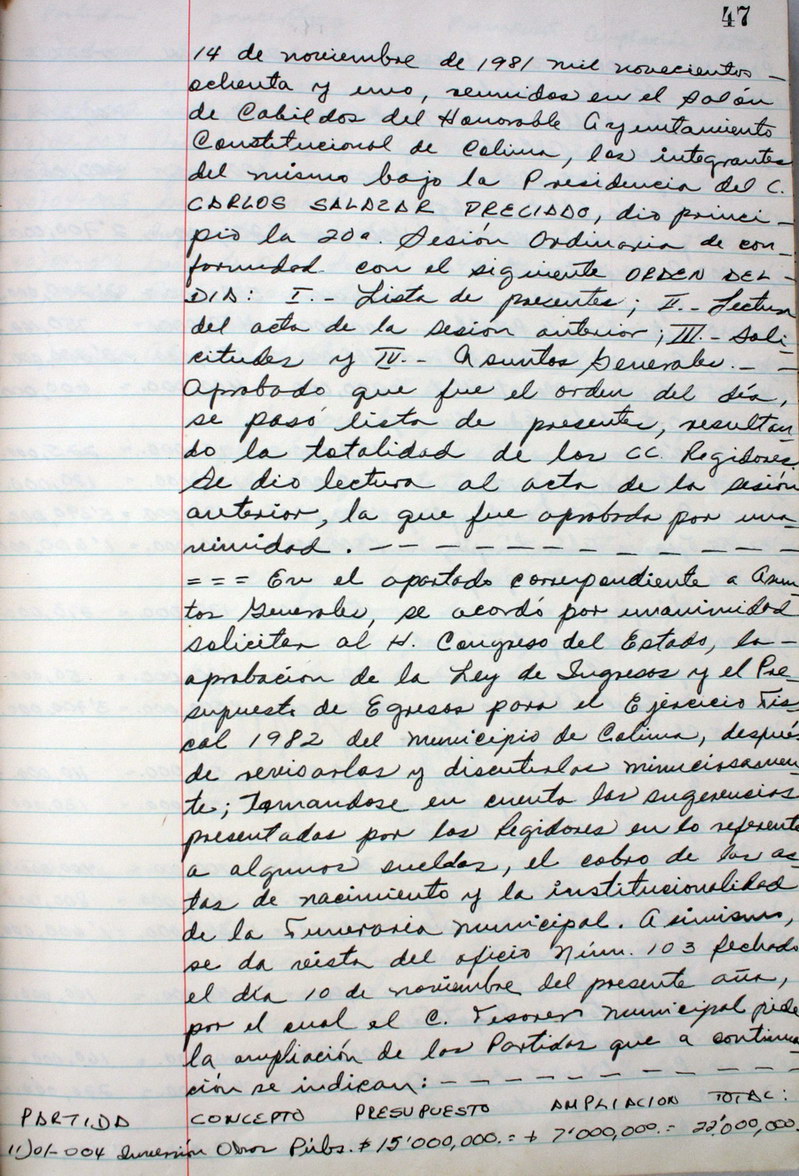 47
14 de noviembre de 1981 mil novecientos -
ochenta y uno, reunidos en el Salón
de Cabildos del Honorable Ayuntamiento
Constitucional de Colima, los integrantes
del mismo bajo la Presidencia del C.
CARLOS SALAZAR PRECIADO, dio princi-
pio la 20a. Sesión Ordinaria de con-
formidad con el siguiente ORDEN DEL -
DIA: I.- Lista de presentes; II.- Lectura
del acta de la sesión anterior; III.- Soli-
citudes y IV.- Asuntos Generales. - -
Aprobado que fue el orden del día,
se pasó lista de presentes, resultan-
do la totalidad de los CC. Regidores.
Se dio lectura al acta de la sesión
anterior, la que fue aprobada por una-
nimidad. - - - - - - - - - - - - -
= = = En el apartado correspondiente a Asun-
tos Generales, se acordó por unanimidad
solicitar al H. Congreso del Estado, la -
aprobación de la Ley de Ingresos y el Pre-
supuesto de Egresos para el Ejercicio Fis-
cal 1982 del Municipio de Colima, después
de revisarlas y discutirlas minuciosamen-
te; Tomandose en cuenta las sugerencias
presentadas por los Regidores en lo referente
a algunos sueldos, el cobro de las ac-
tas de nacimiento y la institucionalidad
de la Funeraria Municipal. Asimismo,
se da vista del oficio Núm. 103 fechado
el día 10 de noviembre del presente año,
por el cual el C. Tesorero Municipal pide
la ampliación de las Partidas que a continua-
ción se indican: - - - - - - - - - -
PARTIDA CONCEPTO PRESUPUESTO AMPLIACION TOTAL:
11)01-004 Inversión Obras Púbs. $ 15'000,000.= + 7'000,000.= 22'000,000.